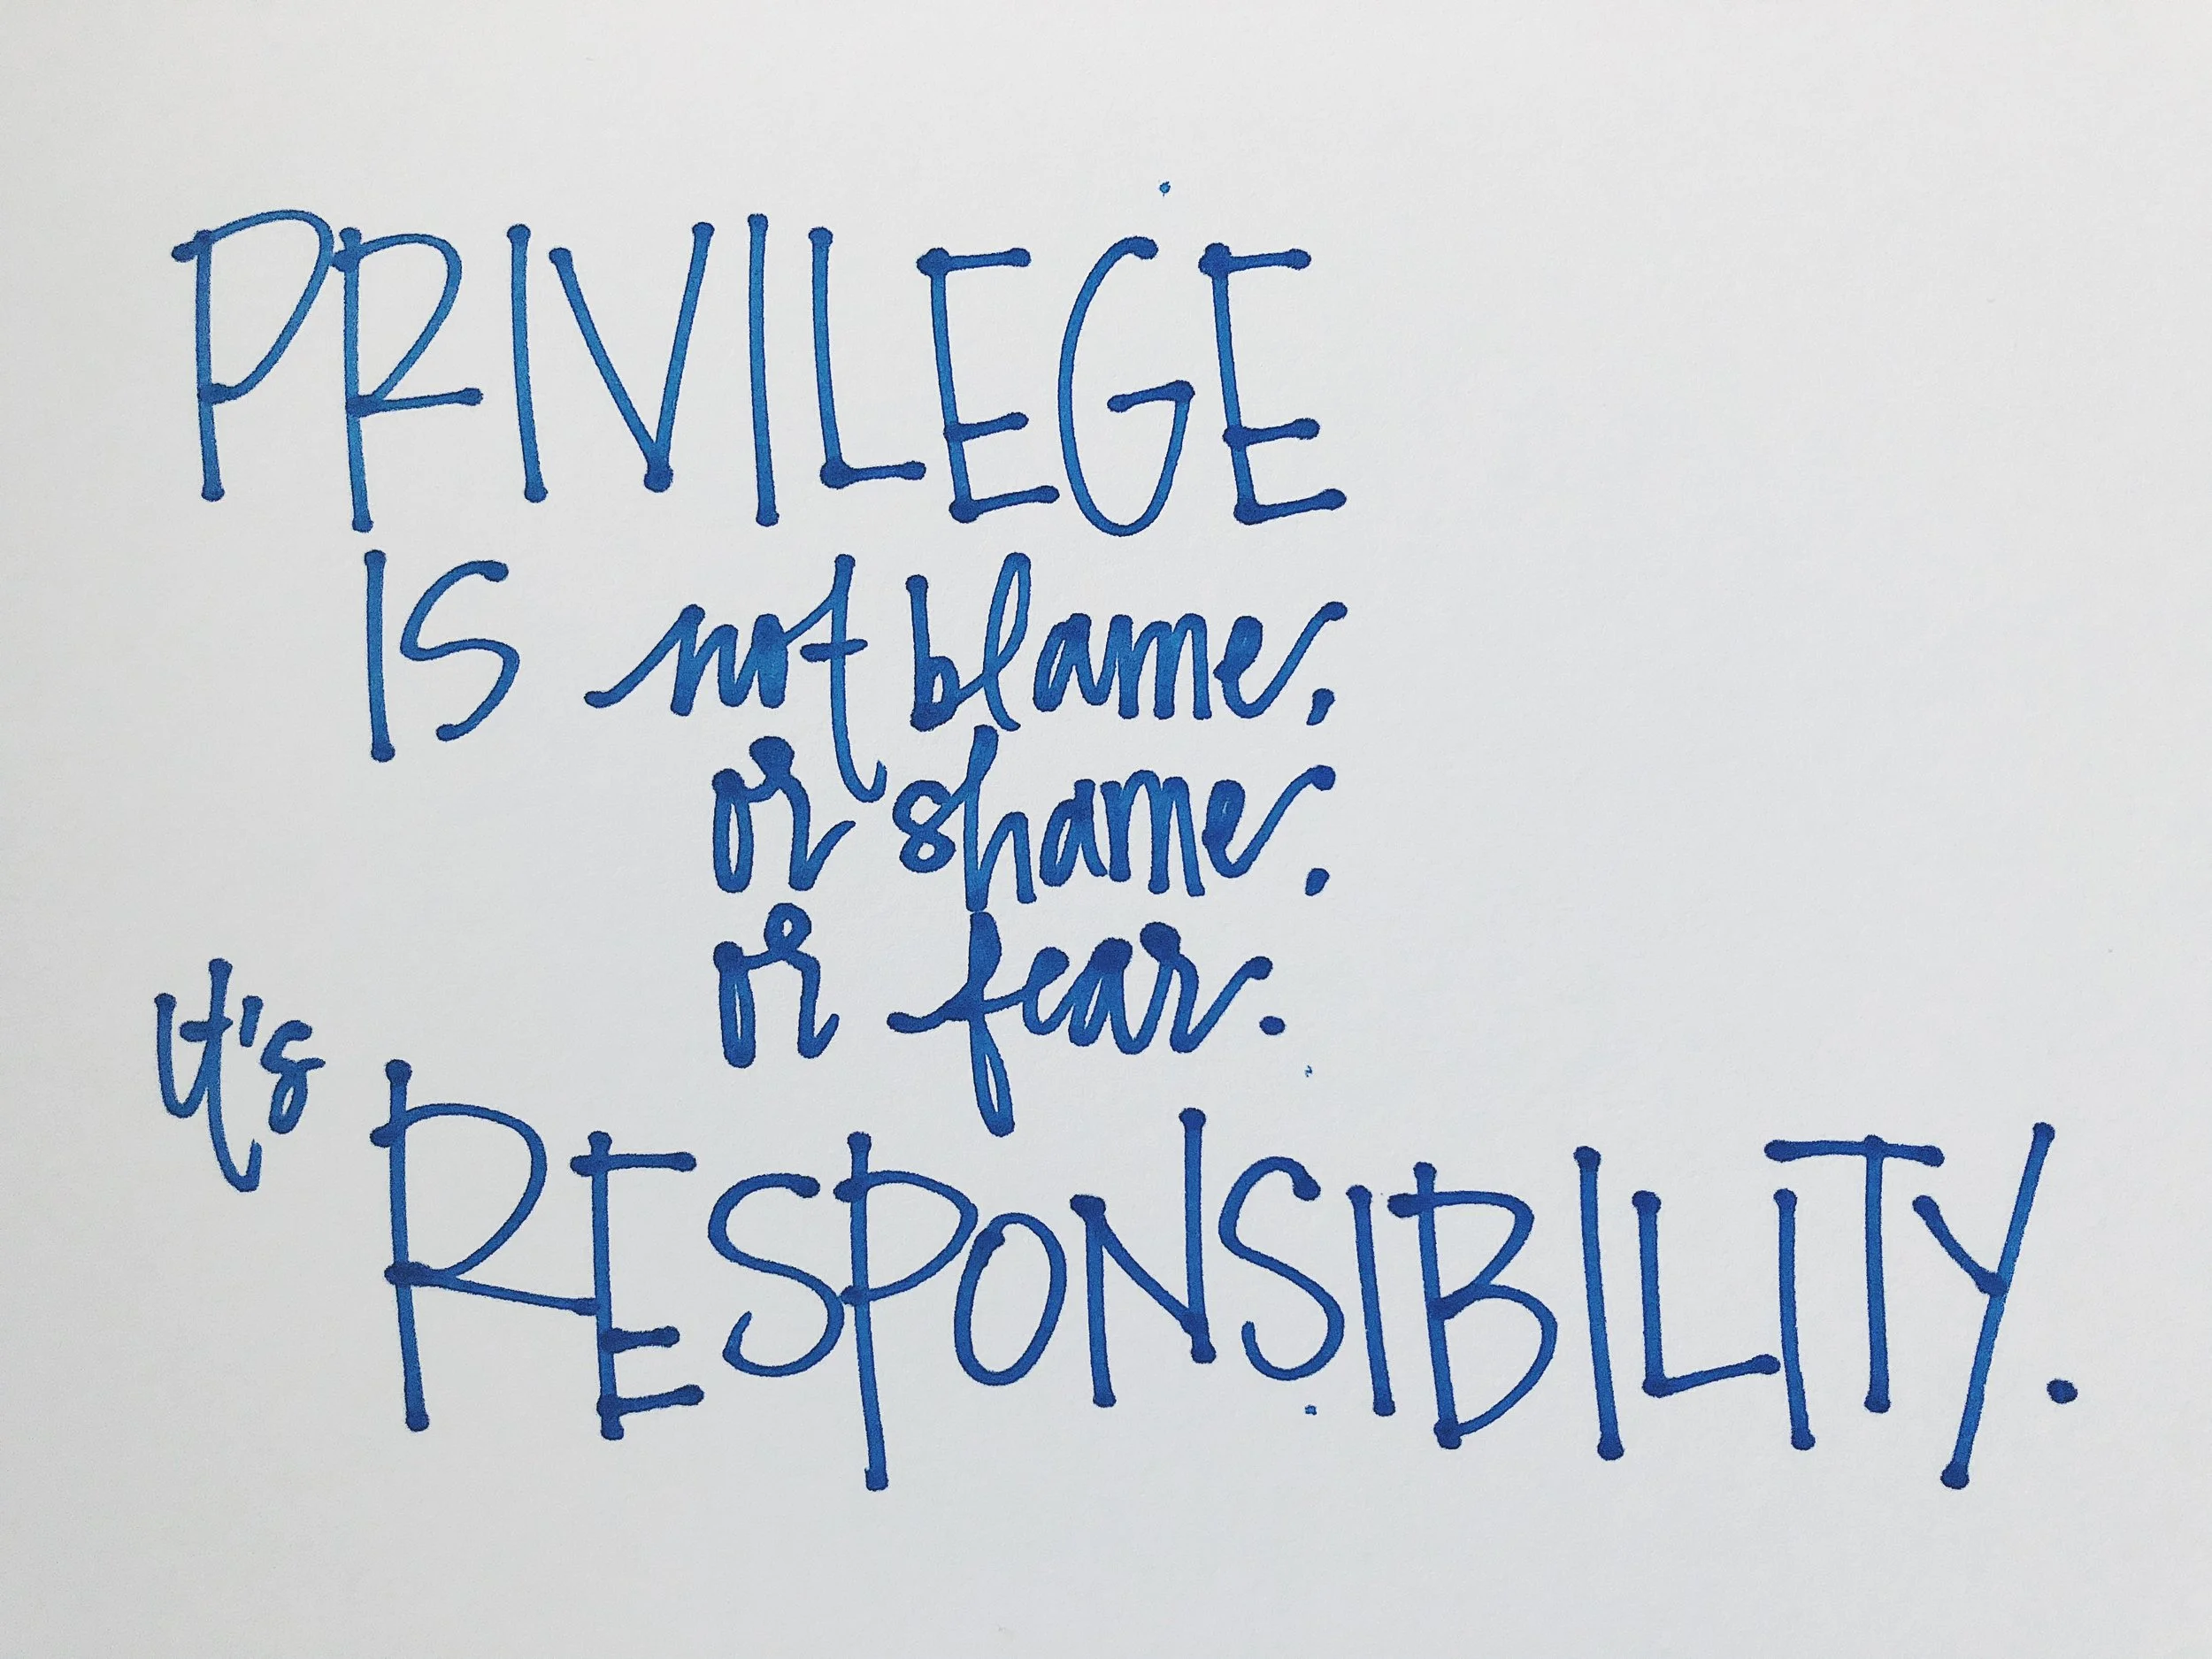 PRIVILEGE
IS not blame.
or shame.
or fear.
it's
RESPONSIBILITY.